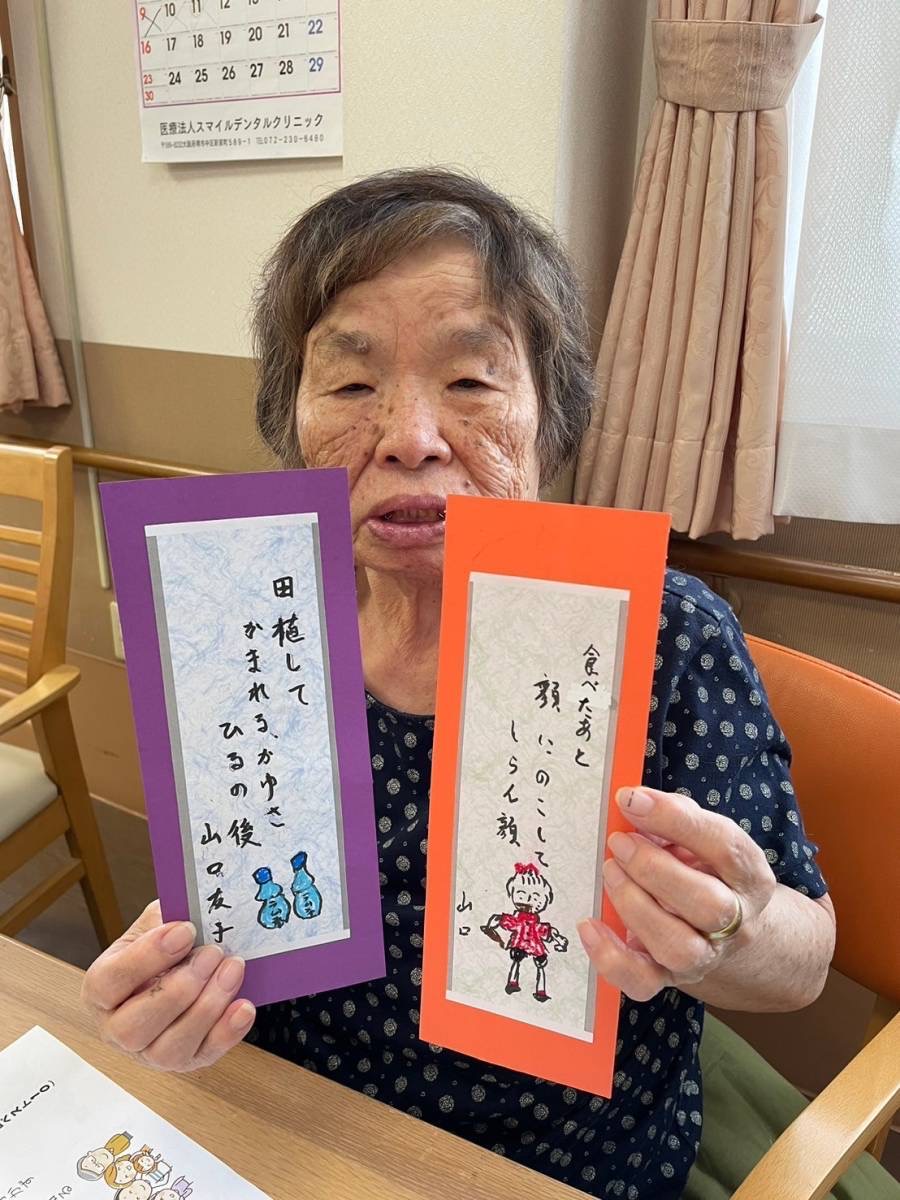 9 10 11 12
16 17 18 19 20 21 22
23 24 25 26 27 28 29
30
医療法人スマイルデンタルクリニック
大阪府堺市中区新家町589-1 TEL072-230-6480
田植して
かまれる、かゆさ
ひるの後
山口友子
食べたあと
顔にのこして
しらん顔
山口